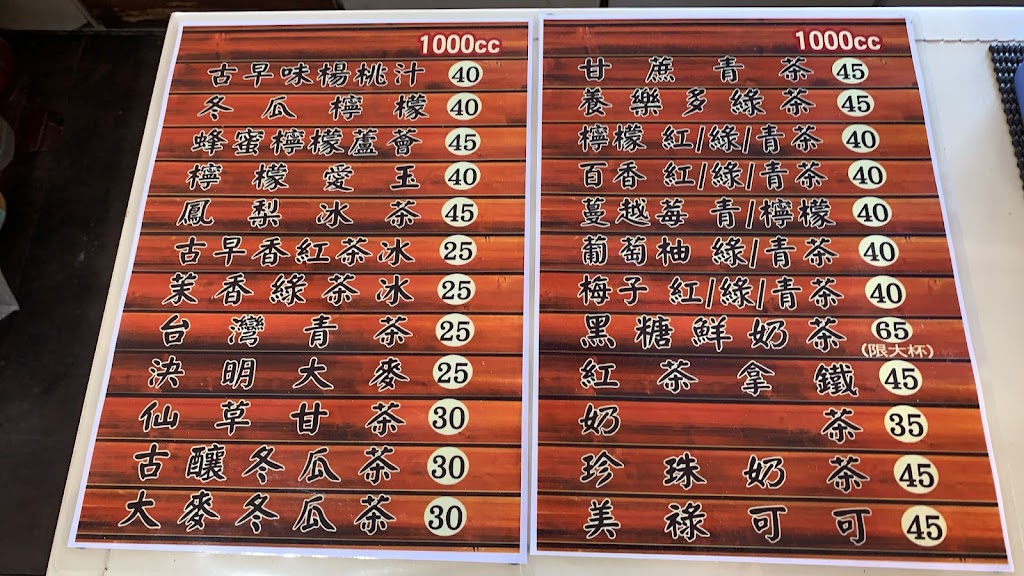 1000cc
古早味楊桃汁 40
冬瓜檸檬 40
蜂蜜檸檬蘆薈 45
檸檬愛玉 40
鳳梨冰茶 45
古早香紅茶冰 25
茉香綠茶冰 25
台灣青茶 25
決明大麥 25
仙草甘茶 30
古釀冬瓜茶 30
大麥冬瓜茶 30
1000cc
甘蔗青茶 45
養樂多綠茶 45
檸檬紅/綠/青茶 40
百香紅/綠/青茶 40
蔓越莓青/檸檬 40
葡萄柚綠/青茶 40
梅子紅/綠/青茶 40
黑糖鮮奶茶 65
(限大杯)
紅茶拿鐵 45
奶茶 35
珍珠奶茶 45
美祿可可 45